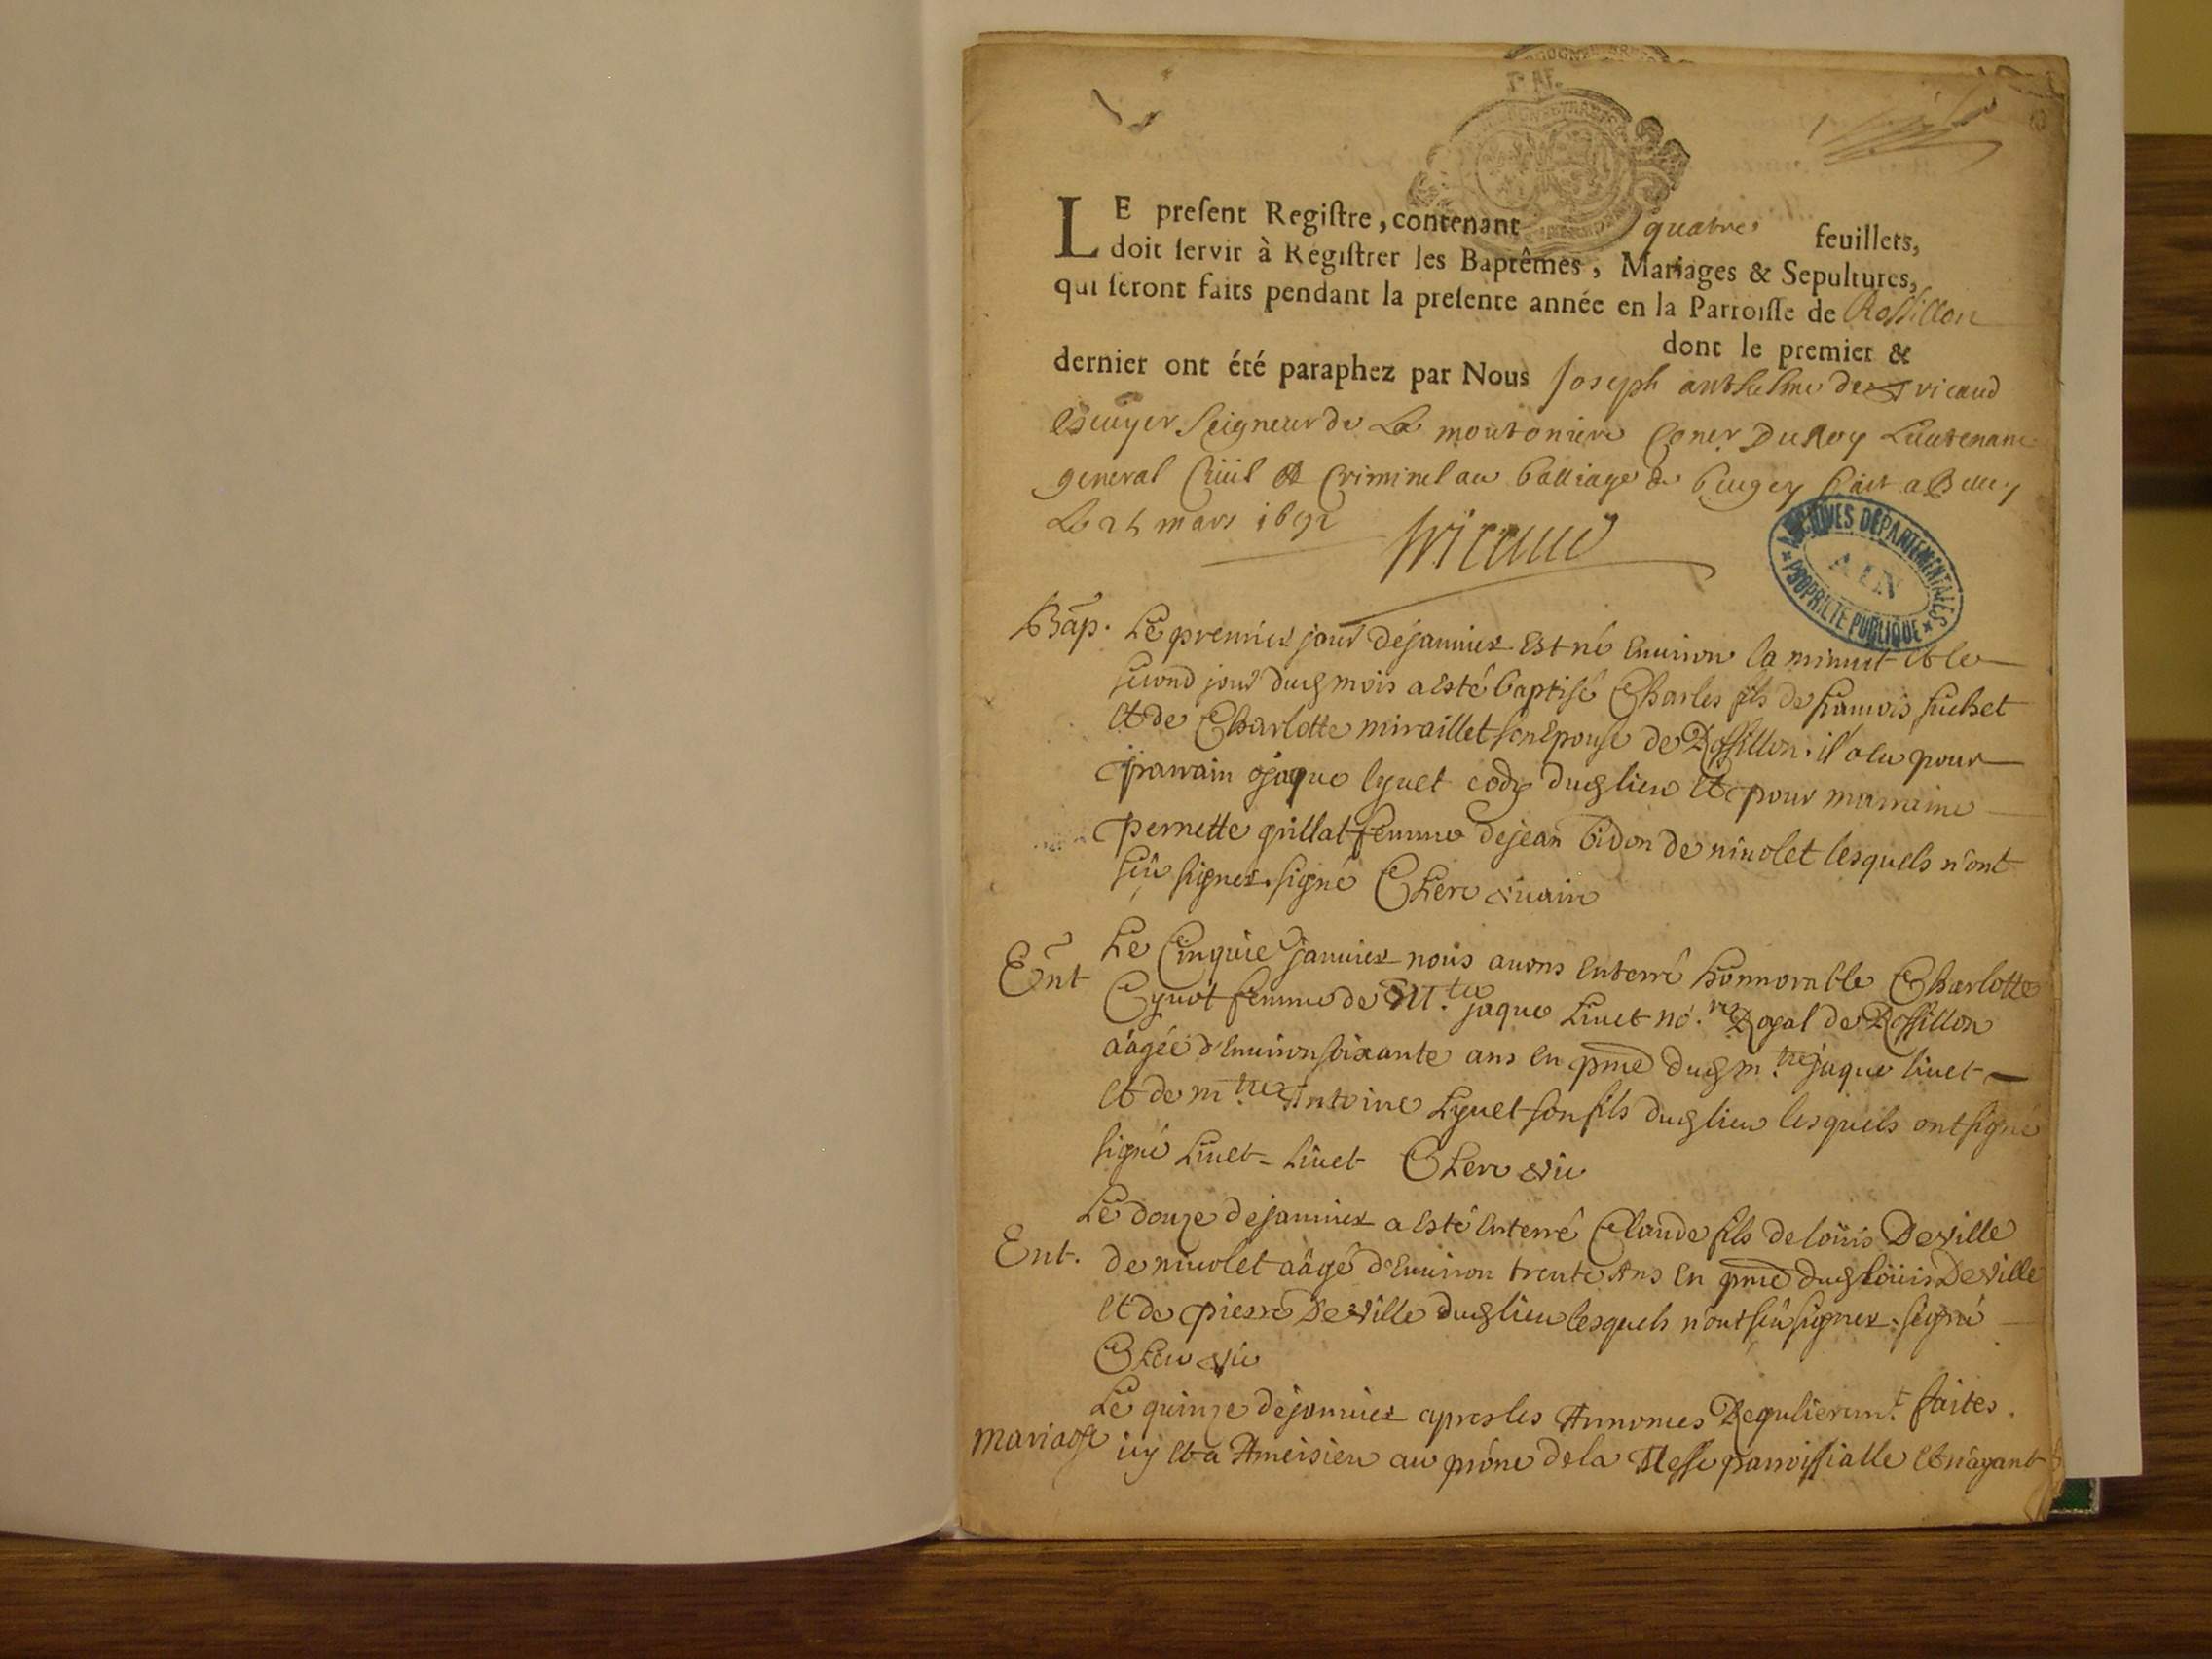 LE present Registre, contenant quatre feuillets,
doit servir à Registrer les Baptêmes, Mariages & Sepultures,
qui seront faits pendant la presente année en la Parroisse de Rossillon
dont le premier &
dernier ont été paraphez par Nous Joseph anthelme de tricaud
Escuyer Seigneur de La moutoniere Coner Du Roy Lieutenant
general Civil et Criminel au balliage de beugey fait a Belley
Le mars 1692
tricaud
ARCHIVES DEPARTEMENTALES
AIN
PROPRIETE PUBLIQUE
Bap. Le premier jour de januier est né enuiron la minuit et le
second jour dud mois a esté baptisé Charles fils de françois suchet
et de Charlotte miraillet son epouse de Rossillon. il a eu pour
parrain jaque lyuet dud lieu et pour marraine
pernette grillat femme de jean bidon de niuolet lesquels n'ont
sçu signer. signé Clerc vicaire
Ent Le Cinquie januier nous auons enterré honnorable Charlotte
Cyuot femme de M.tre jaque Liuet no.re Royal de Rossillon
aagée d'enuiron soixante ans en pnce dud m.tre jaque liuet
et de m.tre Antoine Lyuet son fils dud lieu lesquels ont signé
signé Liuet - Liuet Clerc vic
Ent. Le douze de januier a esté enterré Claude fils de loüis Deville
de niuolet aâgé d'enuiron trente ans en pnce dud loüis Deville
et de pierre Deville dud lieu lesquels n'ont sçu signer. signé
Clerc vic
Le quinze de januier apres les Annonces Regulierem.t faites
mariage icy et a Ameisieu au prône de la Messe parroissialle et n'ayant